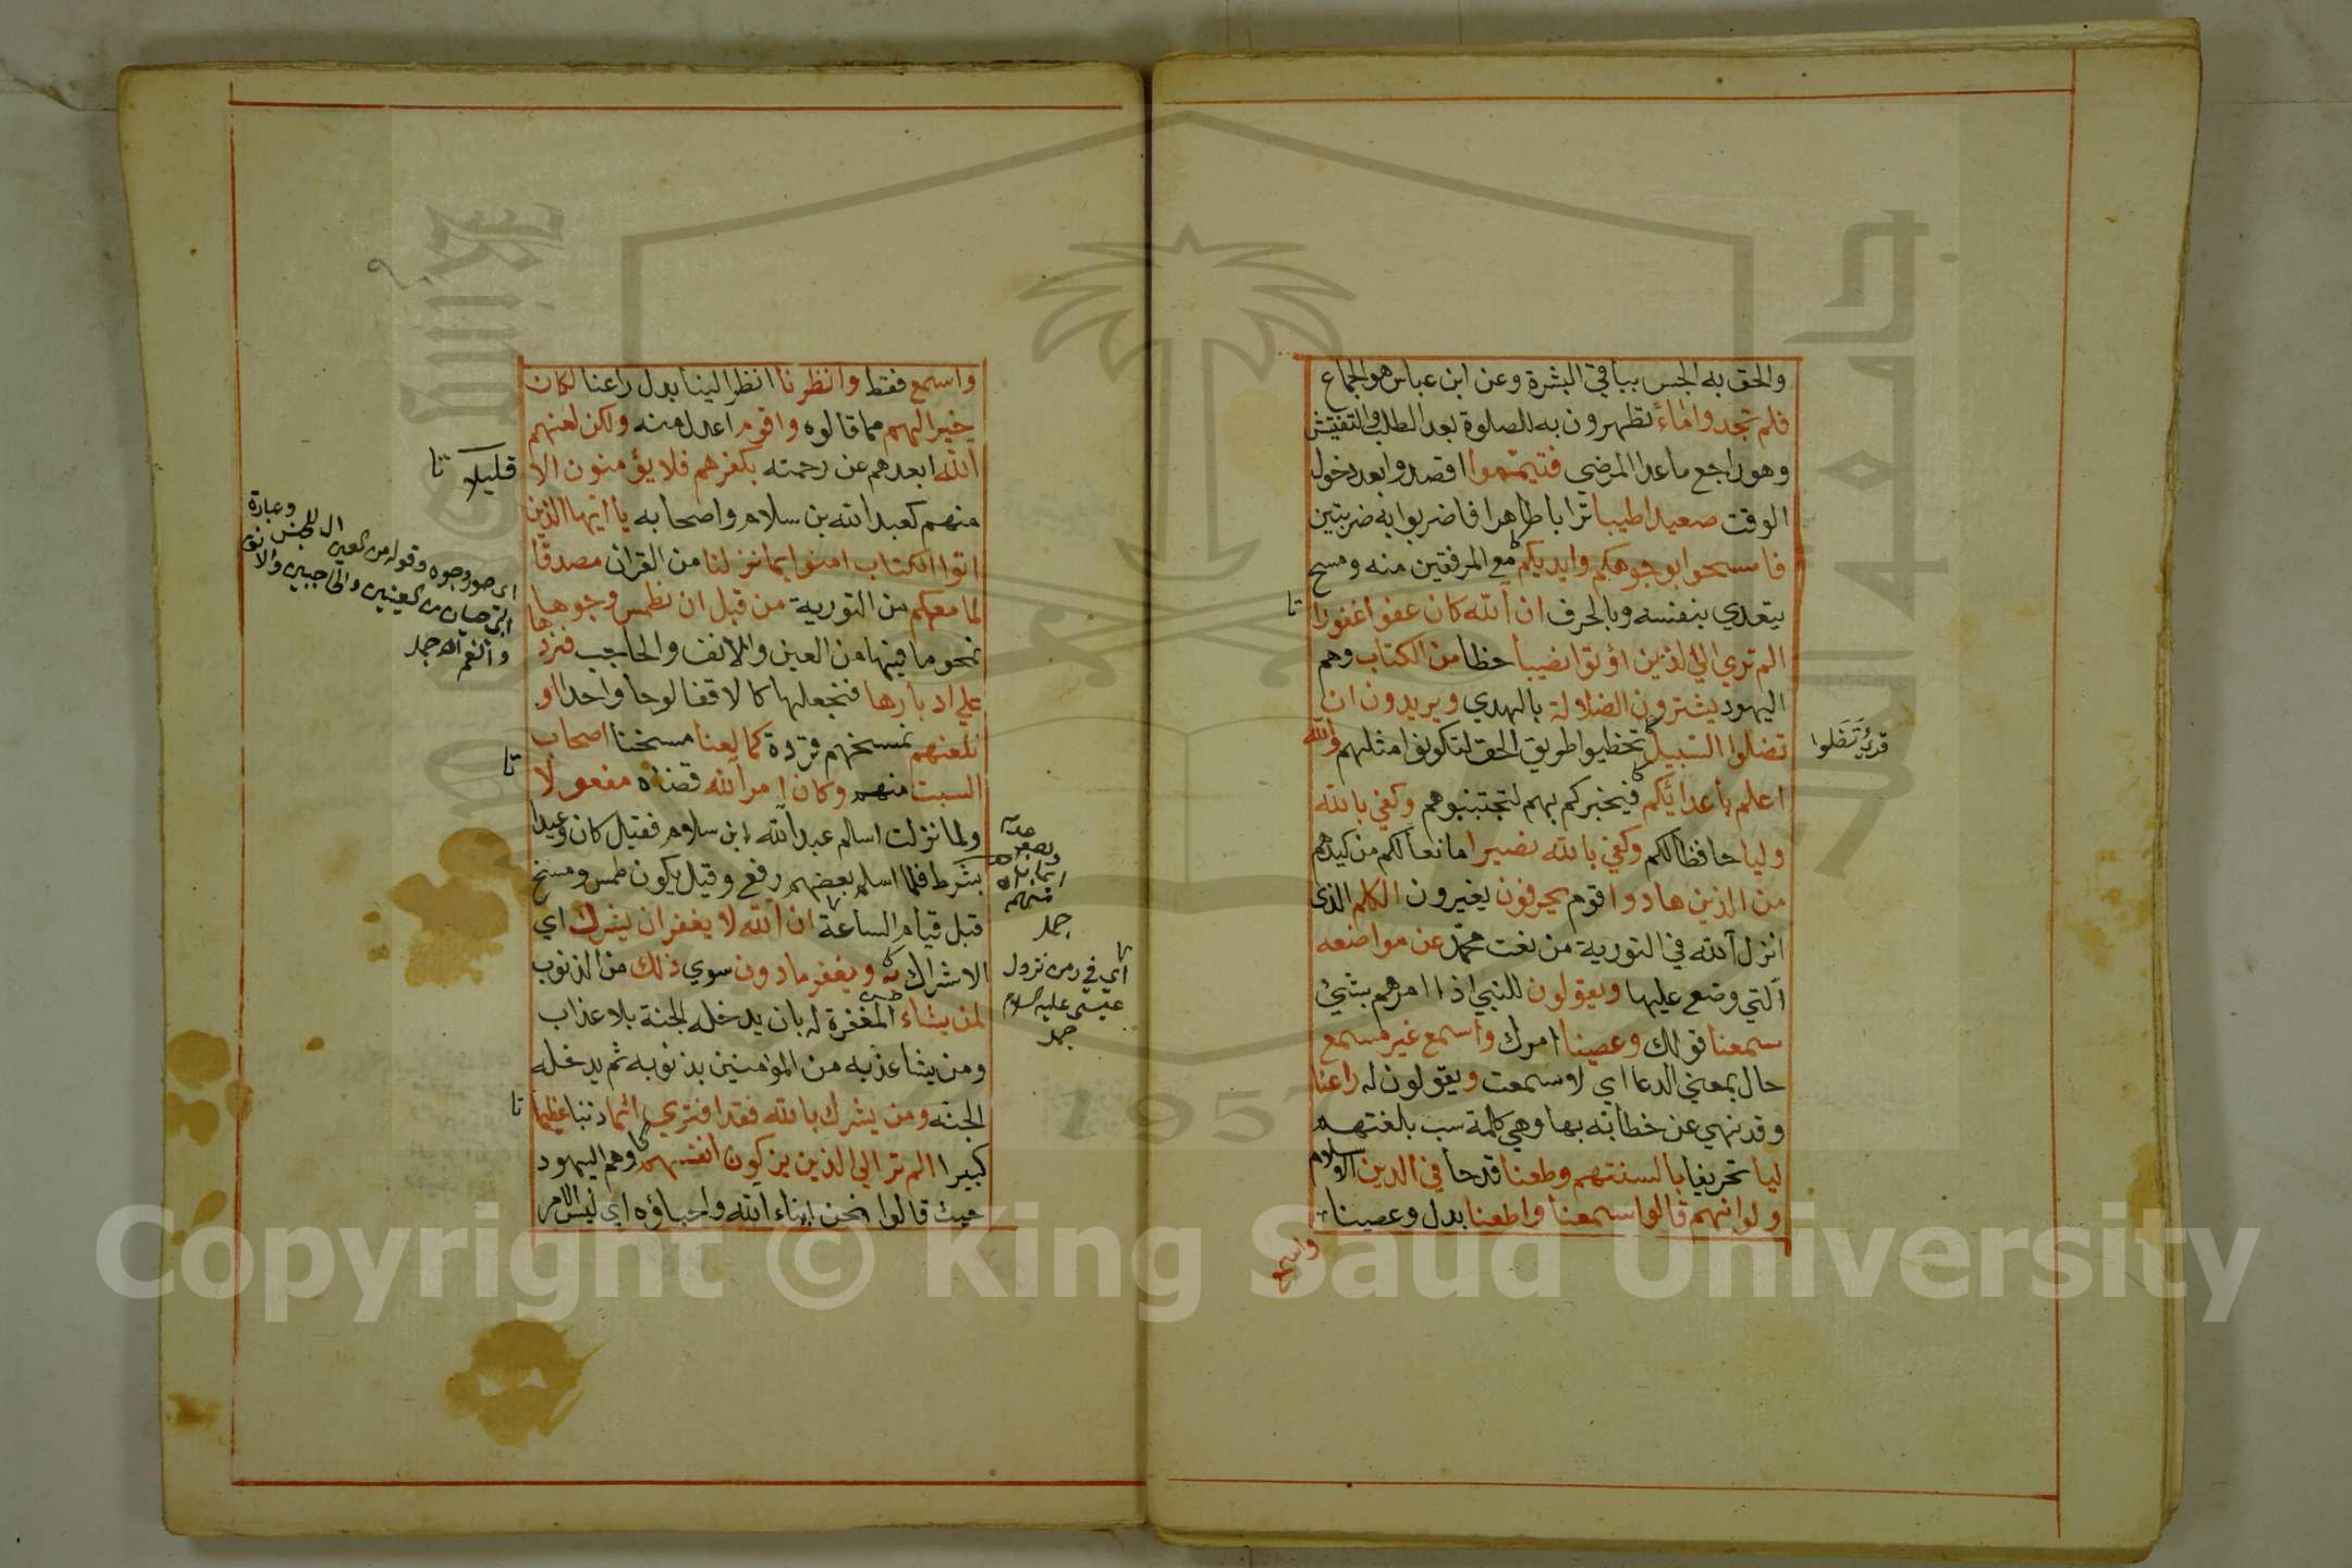 والحق به الجس بباقي البشرة وعن ابن عباس هو الجماع
فلم تجدوا ماءً تطهرون به للصلوة بعد الطلب والتفتيش
وهو راجع ما عدا المرضى فتيمّموا اقصدوا بعد دخول
الوقت صعيدا طيبا ترابا طاهرا فاضربوا به ضربتين
فامسحوا بوجوهكم وايديكم مع المرفقين منه ومسح
يتعدي بنفسه وبالحرف ان الله كان عفوا غفورا
الم تري الي الذين اوتوا نصيبا حظا من الكتاب وهم
اليهود يشترون الضلالة بالهدي ويريدون ان
تضلوا السبيل تخطيوا طريق الحق لتكونوا مثلهم والله
اعلم باعدائكم فيخبركم بهم لتجتنبوهم وكفي بالله
وليا حافظا لكم وكفي بالله نصيرا مانعا لكم من كيدهم
من الذين هادوا قوم يحرفون يغيرون الكلم الذي
انزل الله في التورية من نعت محمّد عن مواضعه
التي وضع عليها ويقولون للنبي اذا امرهم بشيئ
سمعنا قولك وعصينا امرك واسمع غير مسمع
حال بمعني الدعا اي لا سمعت ويقولون له راعنا
وقد نهي عن خطابه بها وهي كلمة سب بلغتهم
ليا تحريفا بالسنتهم وطعنا قدحا في الدين الاسلام
ولو انهم قالوا سمعنا واطعنا بدل وعصينا
واسمع
قرئ تضلوا
واسمع فقط وانظرنا انظر الينا بدل راعنا لكان
خيرا لهم مما قالوه واقوم اعدل منه ولكن لعنهم
الله ابعدهم عن رحمته بكفرهم فلا يؤمنون الا
قليلا
منهم كعبد الله بن سلام واصحابه يا ايها الذين
اتوا الكتاب امنوا بما نزلنا من القران مصدقا
لما معكم من التورية من قبل ان نطمس وجوها
نمحو ما فيها من العين والانف والحاجب فنردها
علي ادبارها فنجعلها كالاقفا لوحا واحدا او
نلعنهم نمسخهم قردة كما لعنا مسخنا اصحاب
السبت منهم وكان امر الله قضاه مفعولا
ولما نزلت اسلم عبد الله ابن سلام فقيل كان وعيدا
بشرط فلما اسلم بعضهم رفع وقيل يكون طمس ومسخ
قبل قيام الساعة ان الله لا يغفر ان يشرك اي
الاشراك به ويغفر ما دون سوي ذلك من الذنوب
لمن يشاء المغفرة له بان يدخله الجنة بلا عذاب
ومن يشا عذبه من المؤمنين بذنوبه ثم يدخله
الجنه ومن يشرك بالله فقد افتري اثما ذنبا عظيما
كبيرا الم تر الي الذين يزكون انفسهم وهم اليهود
حيث قالوا نحن ابناء الله واحباؤه اي ليس الامر
اي في زمن نزول
عيسى عليه السلام
جمل
Copyright © King Saud University
1957